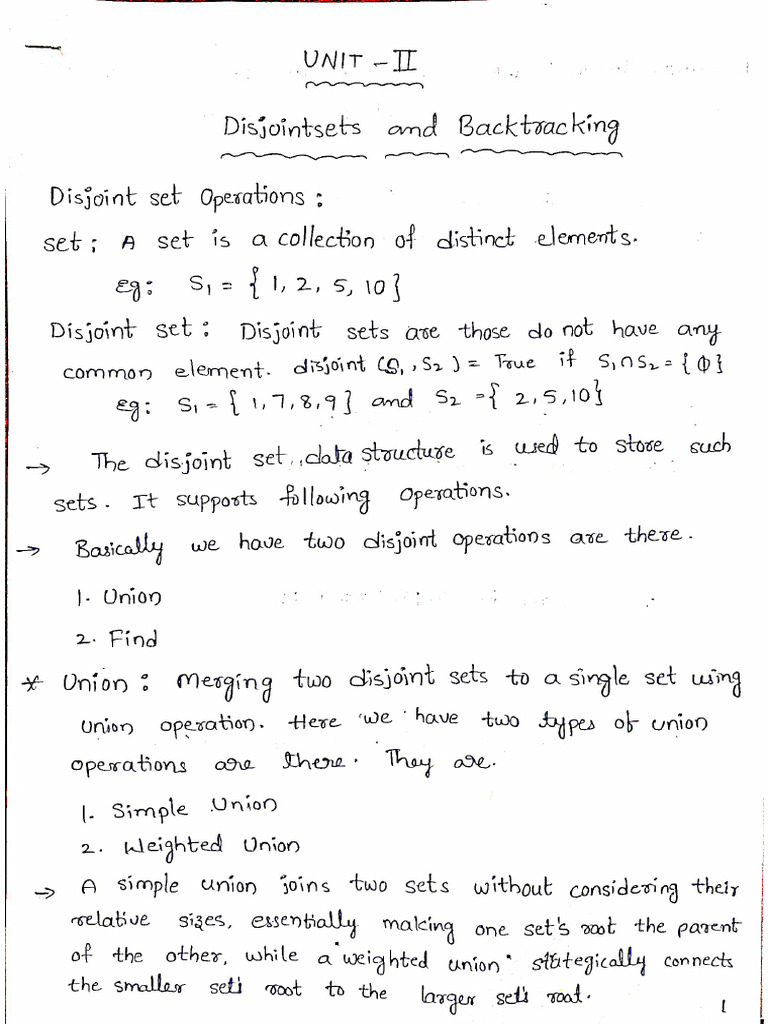 UNIT - II
Disjointsets and Backtracking
Disjoint set Operations :
set : A set is a collection of distinct elements.
eg: S1 = { 1, 2, 5, 10}
Disjoint set : Disjoint sets are those do not have any
common element. disjoint (S1, S2) = True if S1 ∩ S2 = {Φ}
eg: S1 = { 1, 7, 8, 9} and S2 = { 2, 5, 10}
→ The disjoint set data structure is used to store such
sets. It supports following operations.
→ Basically we have two disjoint operations are there.
1. Union
2. Find
* Union : Merging two disjoint sets to a single set using
union operation. Here we have two types of union
operations are there. They are.
1. Simple Union
2. Weighted Union
→ A simple union joins two sets without considering their
relative sizes, essentially making one set's root the parent
of the other, while a "weighted union" stategically connects
the smaller set's root to the larger set's root.
1